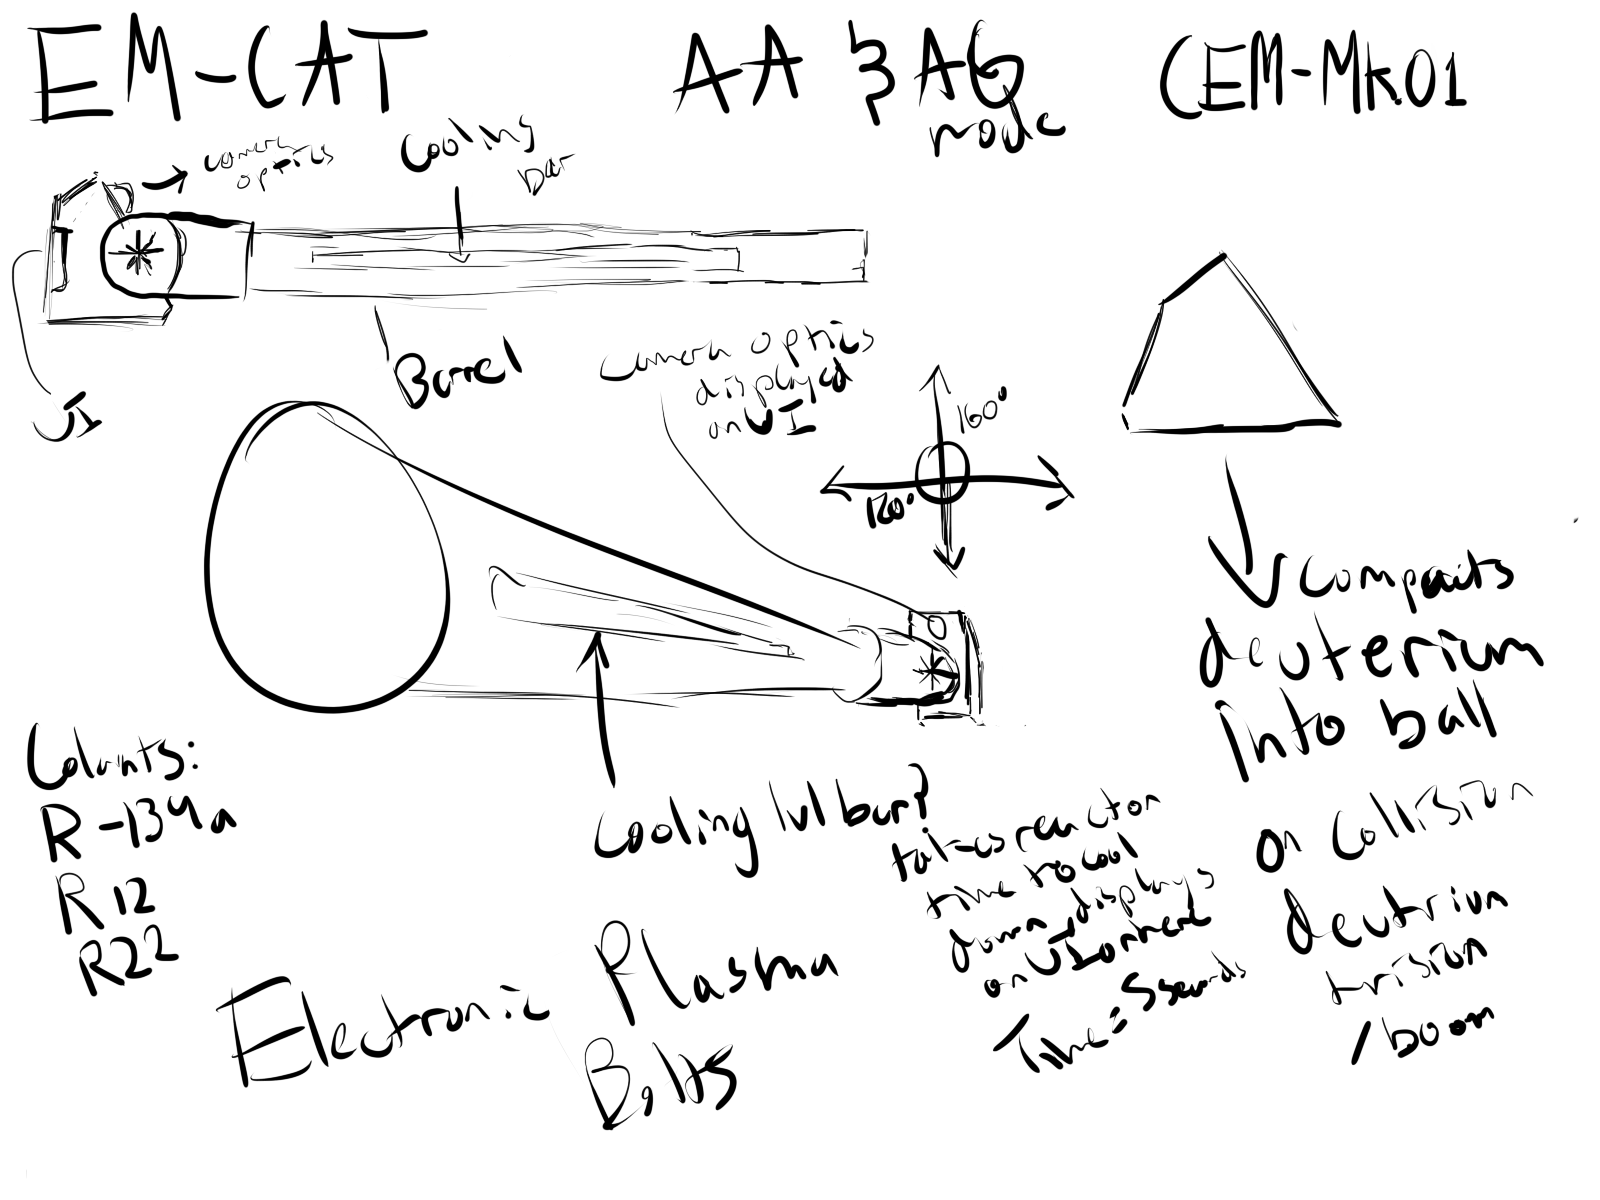 EM-CAT
AA & AG
mode
CEM-Mk.01
camera
optics
Cooling
bar
UI
Barrel
Camera optics
displayed
on UI
160°
120°
compacts
deuterium
into ball
on collision
deutrium
/boom
Colants:
R-134a
R12
R22
Cooling lvl bar?
takes reactor
time to cool
down, displays
on UI
Time = 5 seconds
Electronic Plasma
Bolts